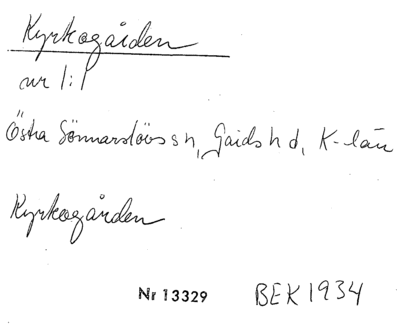 Kyrkogården
nr 1:1
Östra Sönnarslövs sn, Gärds hd, K-län
Kyrkogården
Nr 13329 BEK 1934